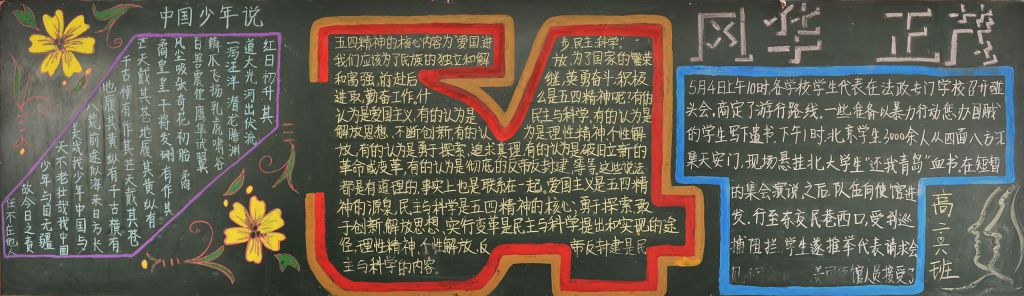 中国少年说
红日初升，其
道大光。河出伏流，
一泻汪洋。潜龙腾渊，
鳞爪飞扬。乳虎啸谷，
百兽震惶。鹰隼试翼，
风尘吸张。奇花初胎，矞
矞皇皇。干将发硎，有作其
芒。天戴其苍，地履其黄。纵有
千古，横有
八荒。前途似海，来日方长。
美哉我少年中国，与
天不老！壮哉我中国
少年，与国无疆！
故今日之责
任，不在他人
五四精神的核心内容为"爱国、进步、民主、科学。"
我们应该为了民族的独立和解放，为了国家的繁荣
和富强，前赴后继，英勇奋斗，积极
进取，勤奋工作，什么是五四精神呢？有的
认为是爱国主义，有的认为是民主与科学，有的认为是
解放思想、不断创新，有的认为是理性精神、个性解
放，有的认为是勇于探索、追求真理，有的认为是破旧立新的
革命或变革，有的认为是彻底的反帝反封建，等等，这些说法
都是有道理的，事实上也是联系在一起。爱国主义是五四精
神的源泉，民主与科学是五四精神的核心，勇于探索、敢
于创新、解放思想、实行变革是民主与科学提出和实现的途
径，理性精神、个性解放、反帝反封建是民
主与科学的内容。
风华 正茂
5月4日上午10时各学校学生代表在法政专门学校召开碰
头会，商定了游行路线。一些准备以暴力行动惩办国贼
的学生写下遗书。下午1时，北京学生3000余人从四面八方汇
集天安门，现场悬挂北大学生"还我青岛"血书。在短暂
的集会演说之后，队伍向使馆进
发，行至东交民巷西口，受到巡
捕阻拦，学生遂推举代表请求会
馆人员接受了
高一六班